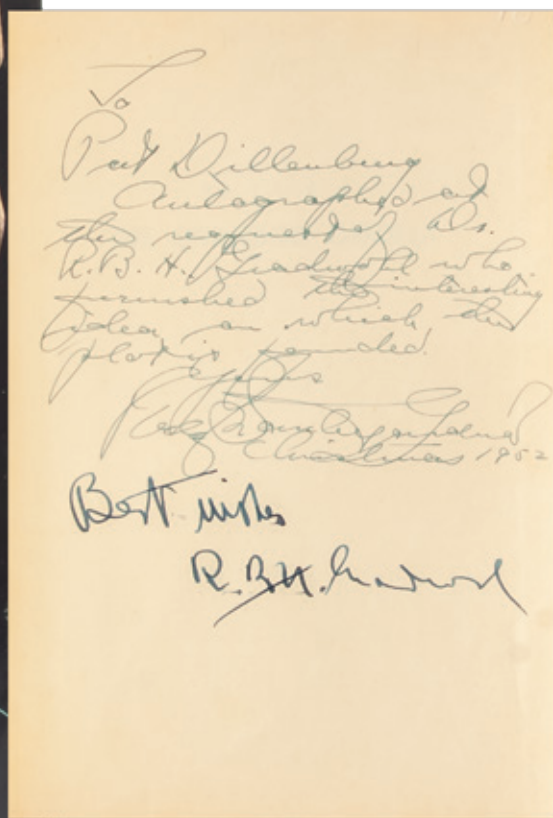 To
Pat Dillenburg
Autographed at
the request of Dr.
R. B. H. Gradwohl who
furnished the interesting
idea on which the
plot is founded.
Christmas 1952
Best wishes
R. B. H. Gradwohl